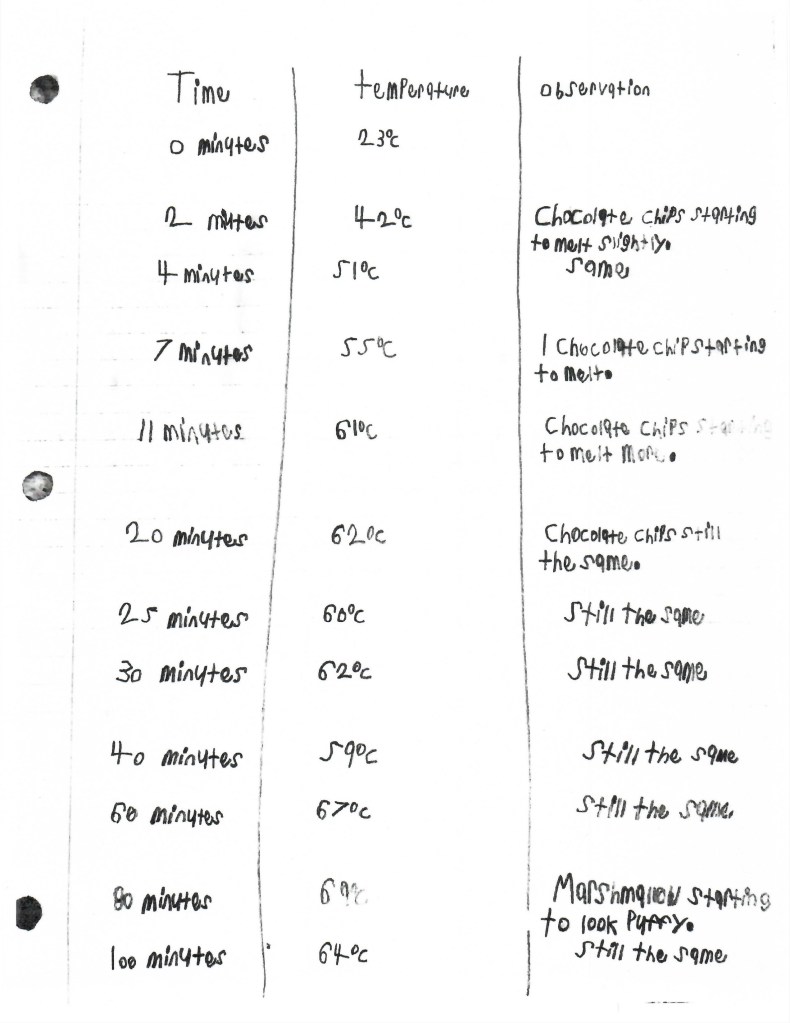 Time temperature observation
0 minutes 23°c
2 mintes 42°c Chocolate chips starting
to melt slightly.
4 minutes 51°c same
7 minutes 55°c 1 Chocolate chip starting
to melt.
11 minutes 61°c Chocolate chips starting
to melt more.
20 minutes 62°c Chocolate chips still
the same.
25 minutes 60°c still the same
30 minutes 62°c still the same
40 minutes 59°c still the same
60 minutes 67°c still the same
80 minutes Marshmallow starting
to look puffy.
100 minutes 64°c still the same